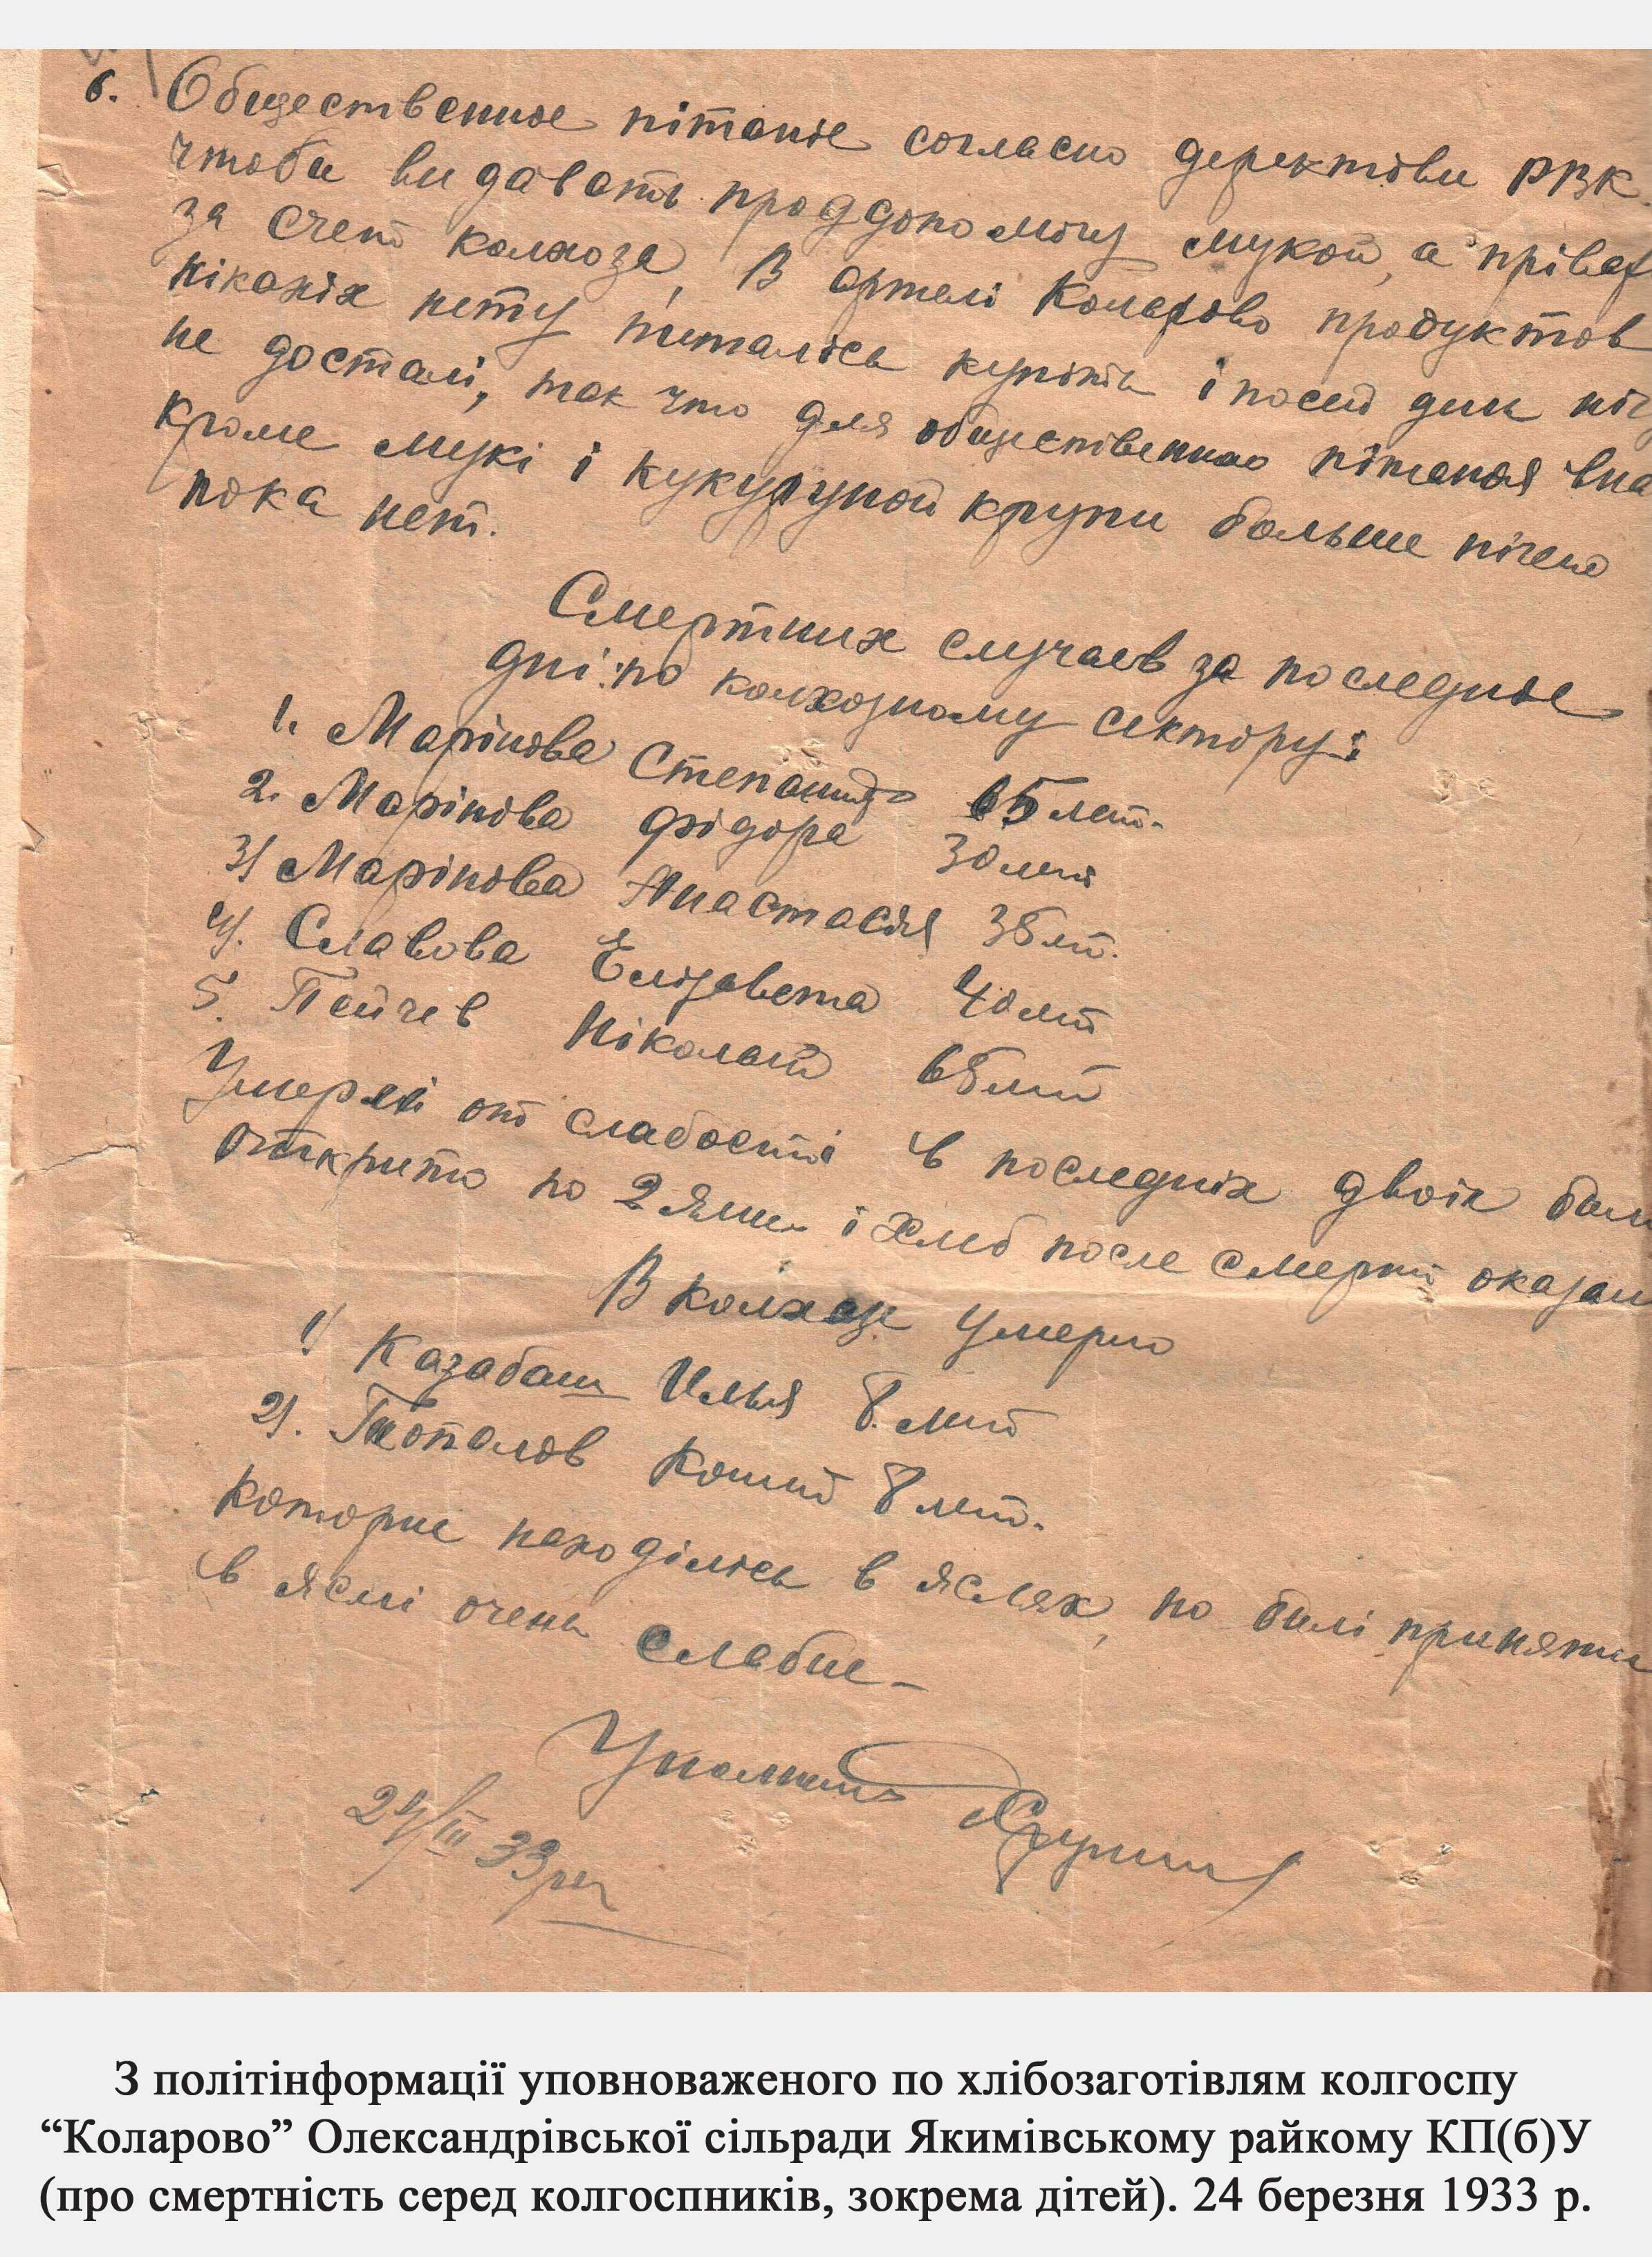 6. Общественное пітаніе согласно деректіви РВК.
чтоби видавать проддопомогу мукой, а прівар
за счет колхоза, В артелі Коларово продуктов
ніканіх нету питалісь купіть і посей дин ніч
не досталі, так что для общественно пітаная
кроме мукі і кукурузной крупи больше нічего
пока нет.
Смертних случаев за последніе
дні: по колхозному сектору:
1. Марінова Степанида 65 лет.
2. Марінова Фідора 30 лет
3) Марінова Анастасія 35 лт.
4). Славова Елізавета 40 лет
5. Пейчев Ніколай 65 лет
Умерлі от слабості в последніх двоіх бил
откріто по 2 ями і хлеб после смерті оказал
В колхозе умерло
1) Казабаш Илья 8. лет
2). Топалов 8 лет.
которие находілісь в яслях, но билі приняти
в яслі очень слабие
24/III 33
З політінформації уповноваженого по хлібозаготівлям колгоспу
“Коларово” Олександрівської сільради Якимівському райкому КП(б)У
(про смертність серед колгоспників, зокрема дітей). 24 березня 1933 р.